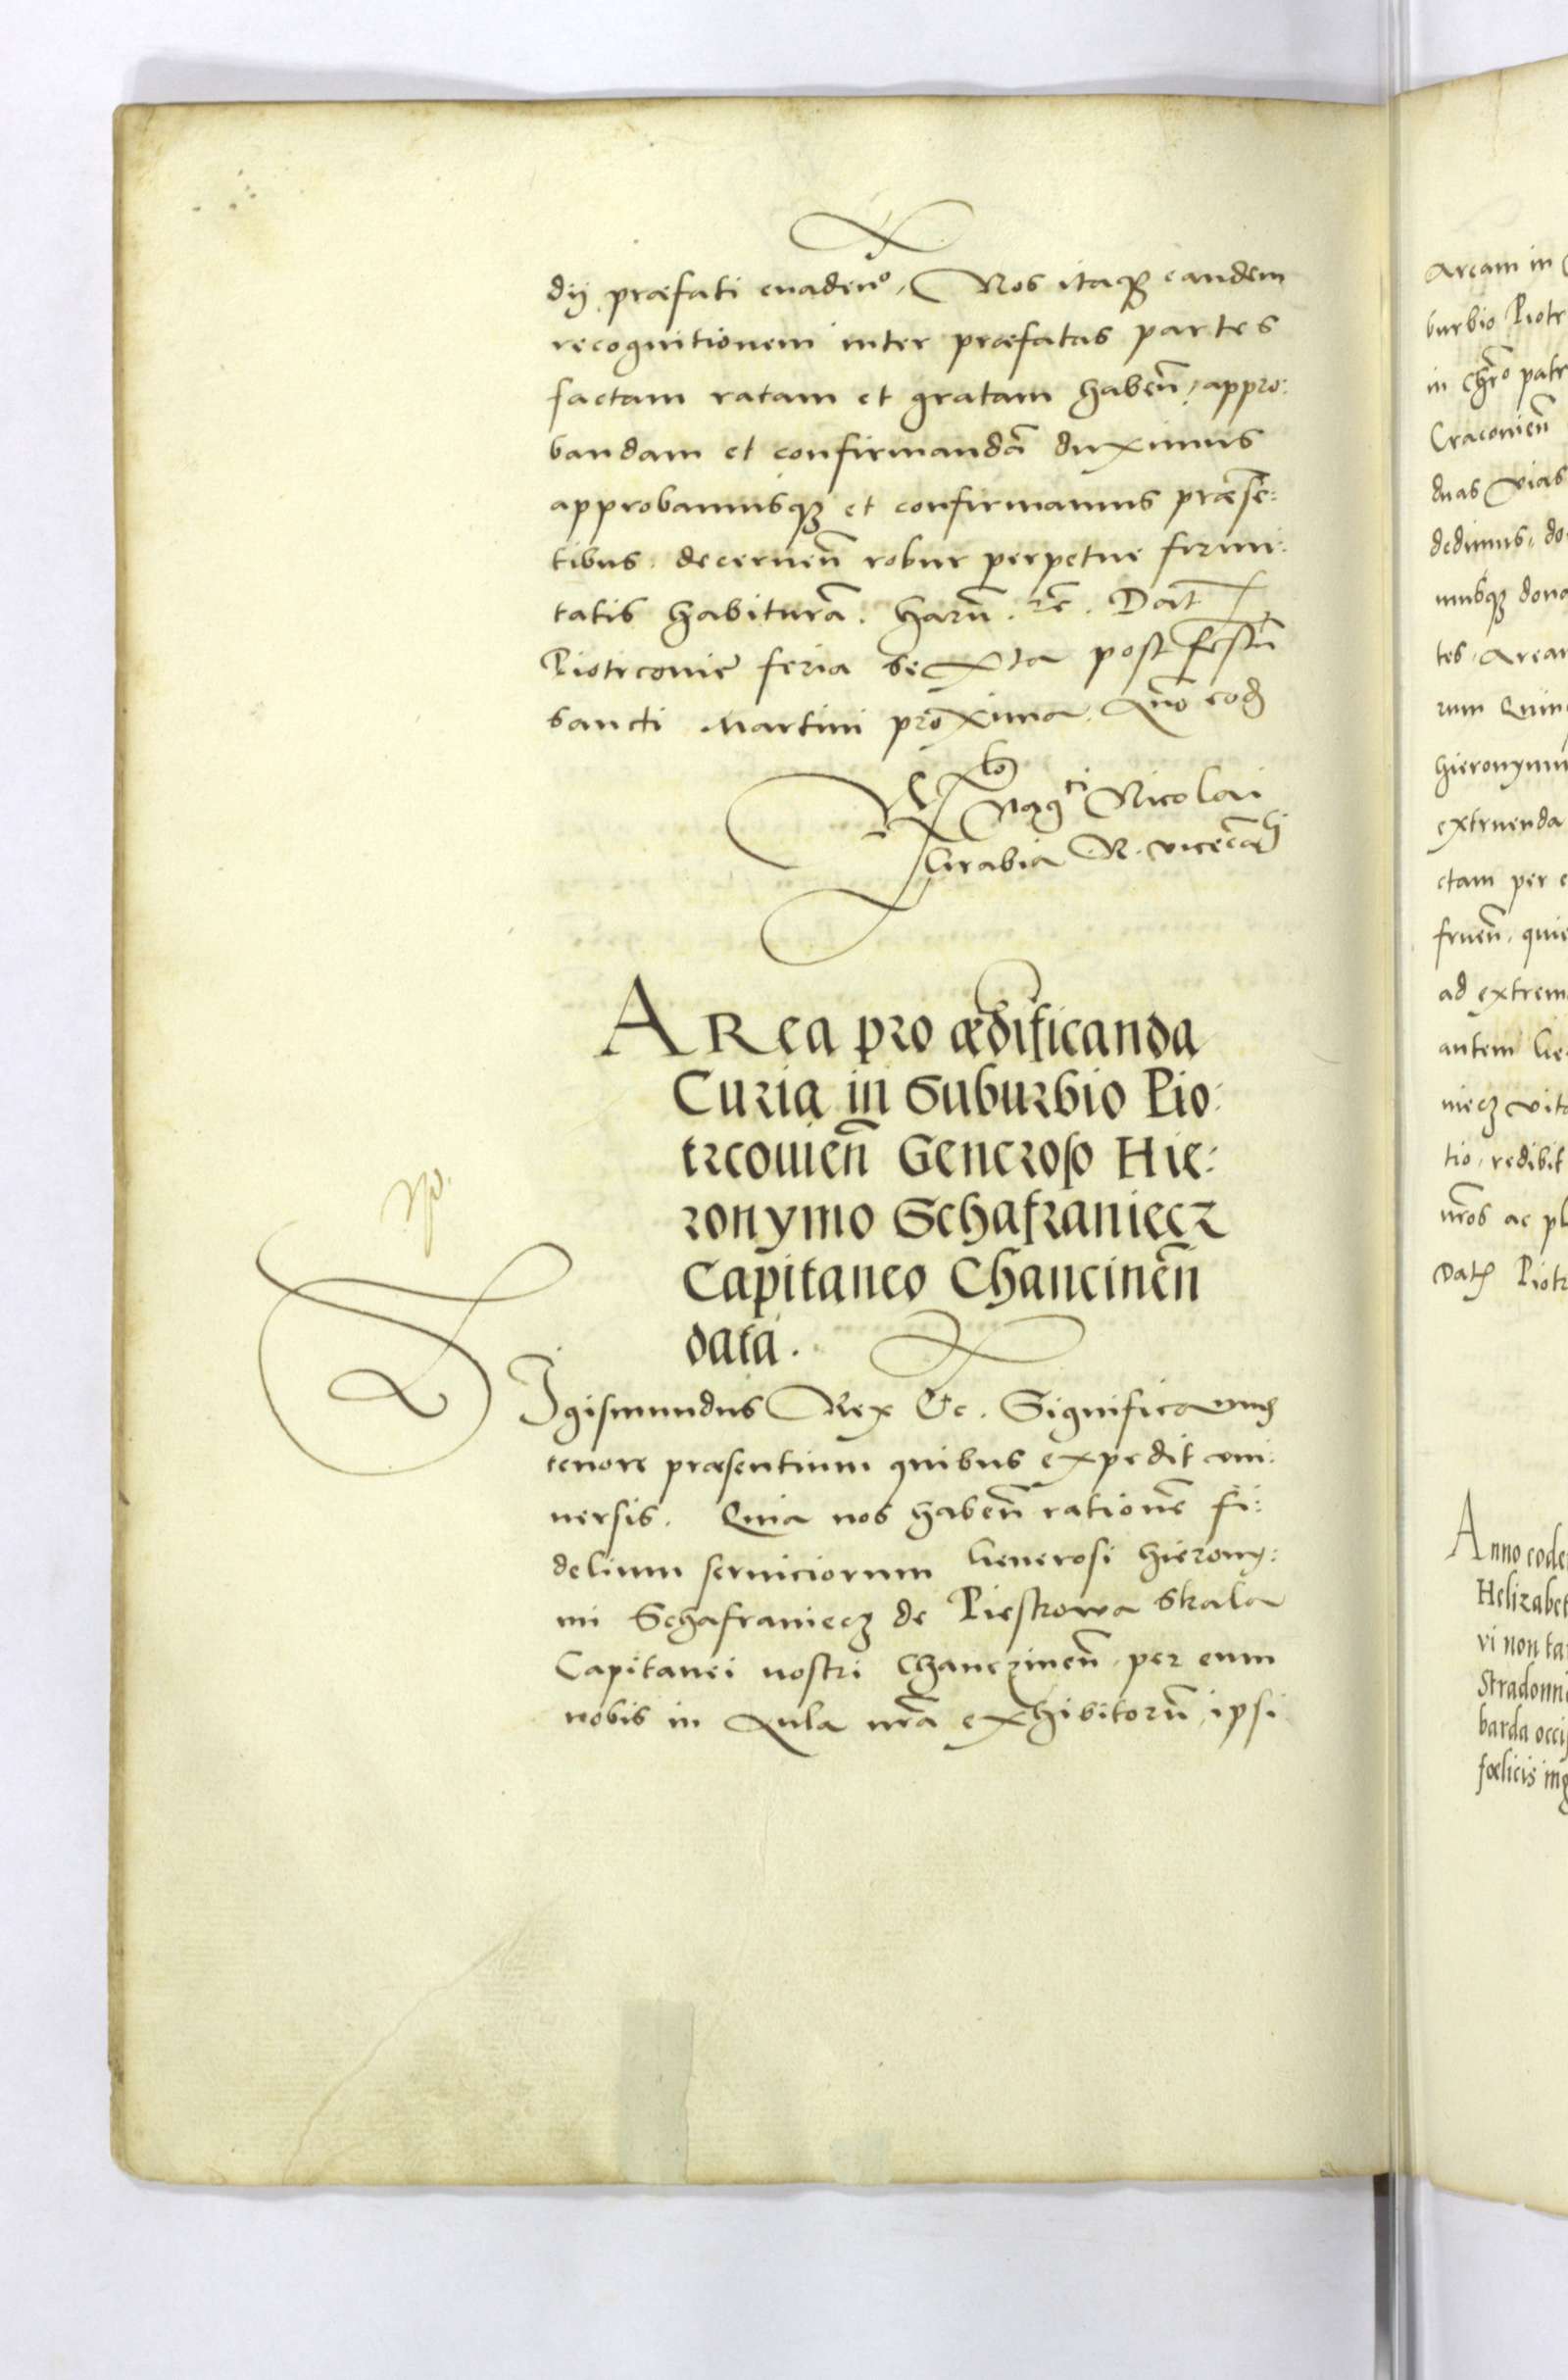 dij præfati euadenᵒ, Nos itaqꝫ eandem
recognitionem inter præfatas partes
factam ratam et gratam habeñ, appro:
bandam et confirmandā duximus
approbamusqꝫ et confirmamus præsē:
tibus. decerneñ robur perpetue firmi:
tatis habiturā. Harū. rē. Dat
Piotrconie feria sexta post festū
sancti Martini proxima. Año eod
Mag^ci Nicolai
Grabia R. vicecā
Area pro ædificanda
Curia in Suburbio Pio:
trcouieñ Generoso Hie:
ronymo Schafraniecz
Capitaneo Chancineñ
data.
Sigismundus Rex &c. Significamus
tenore præsentium quibus expedit vni:
uersis. Quia nos habeñ rationē fi:
delium seruiciorum Generosi Hierony:
mi Schafraniecz de Pieskowa Skala
Capitanei nostri Chanczineñ per eum
nobis in Aula nrā exhibitorū, ipsi
Aream in
burbio Piotr
in Chrō patr
Cracouieñ
duas vias
dedimus, do
musqꝫ dona
tes, Arean
rum Quin
Hieronymu
extruenda
ctam per e
frueñ, quie
ad extrem
autem Ge
niecz vita
tio, redibit
nros ac pl
Dat Piotr
Anno eode
Helizabet
vi non ta
Stradomi
barda occi
fœlicis ing